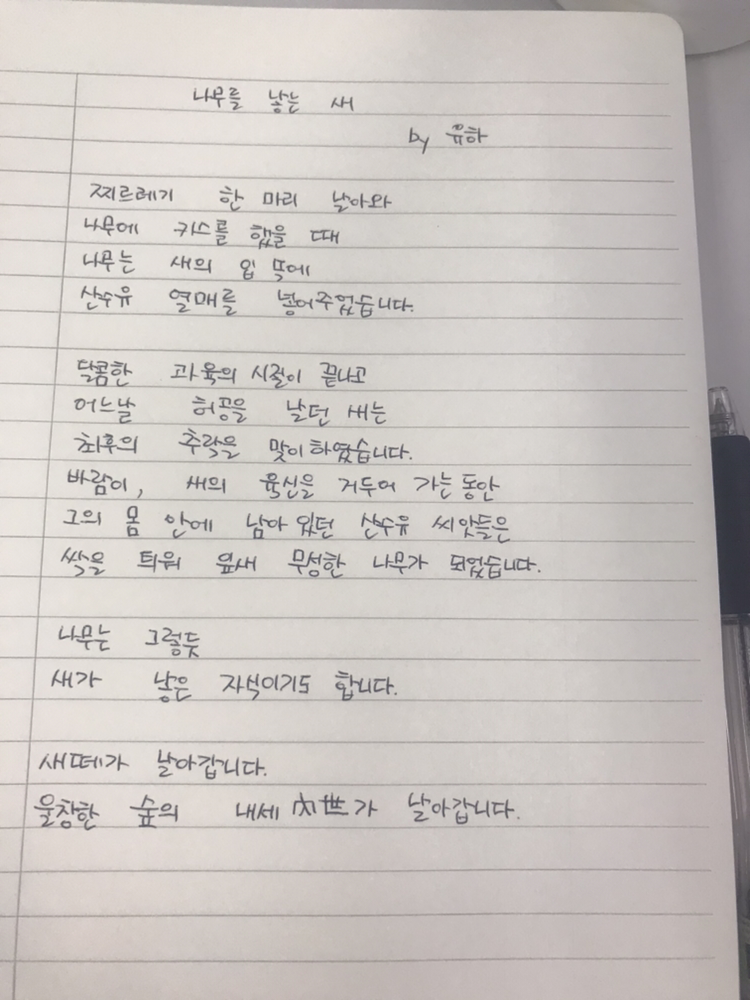 나무를 낳는 새
by 유하
찌르레기 한 마리 날아와
나무에 키스를 했을 때
나무는 새의 입 속에
산수유 열매를 넣어주었습니다.
달콤한 과육의 시절이 끝나고
어느날 허공을 날던 새는
최후의 추락을 맞이하였습니다.
바람이, 새의 육신을 거두어 가는 동안
그의 몸 안에 남아 있던 산수유 씨앗들은
싹을 틔워 잎새 무성한 나무가 되었습니다.
나무는 그렇듯
새가 낳은 자식이기도 합니다.
새떼가 날아갑니다.
울창한 숲의 내세 內世가 날아갑니다.